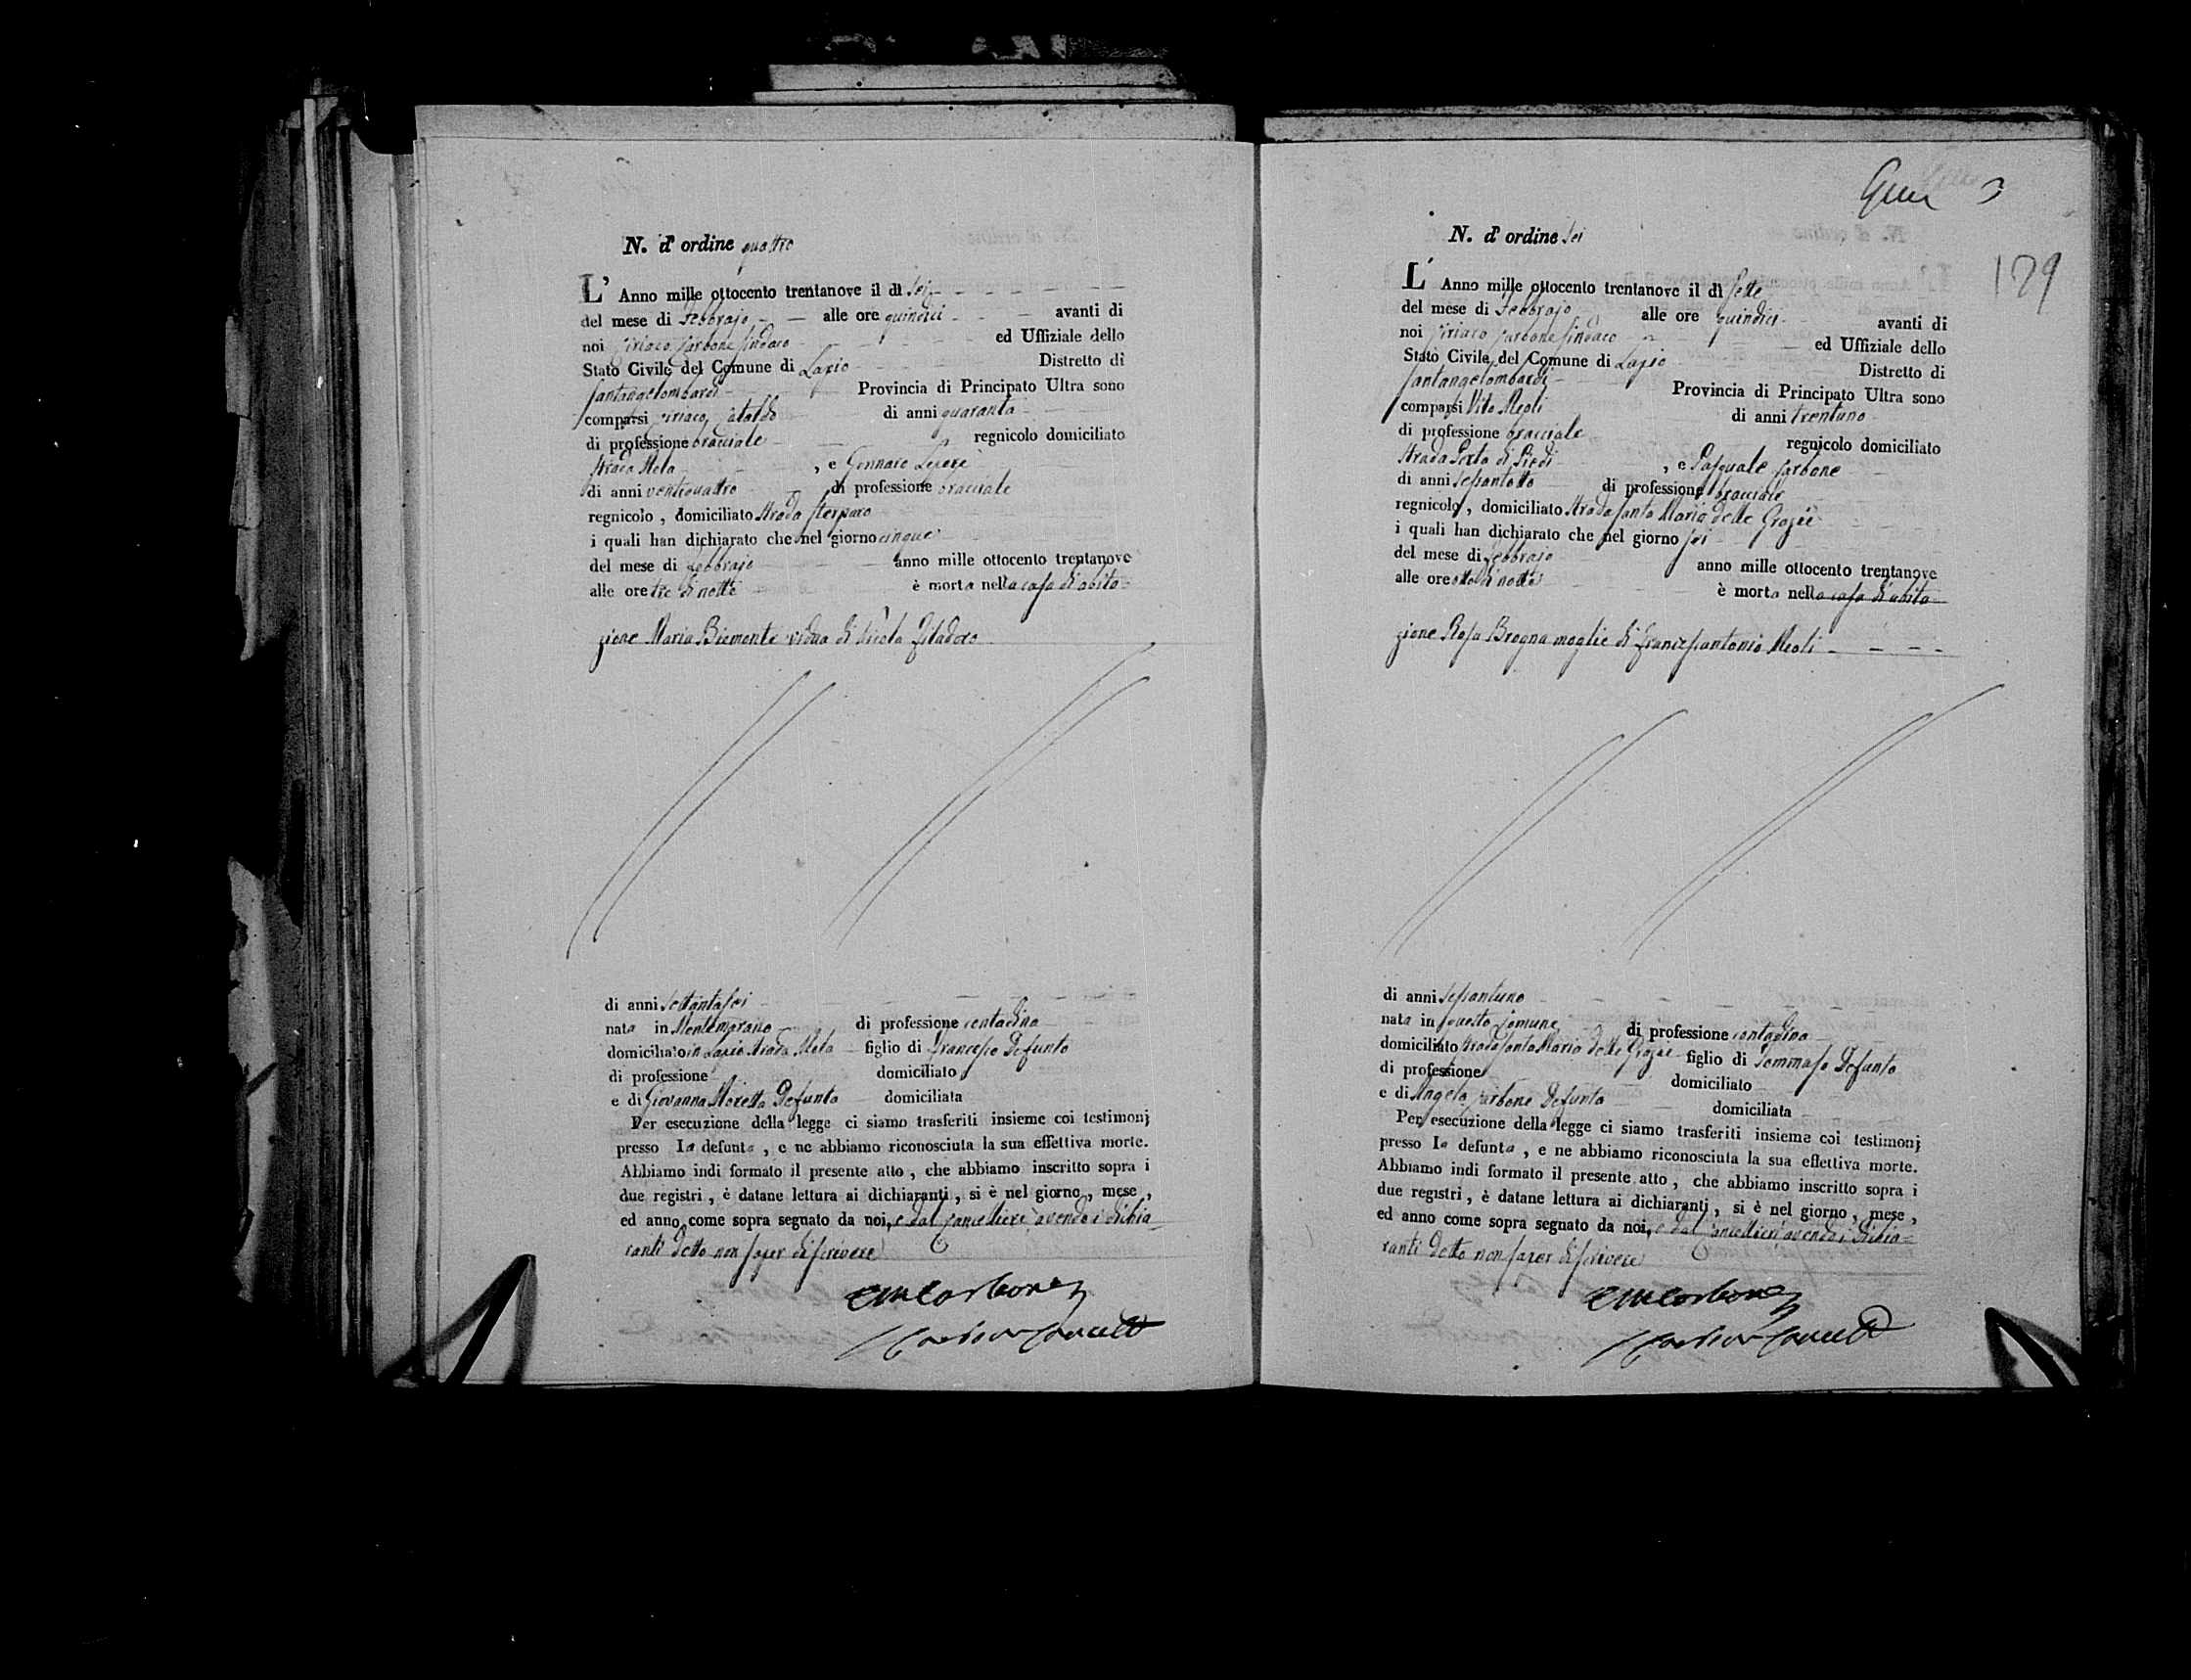 N. d' ordine quattro
L' Anno mille ottocento trentanove il dì sei
del mese di Febbrajo alle ore quindici avanti di
noi Ciriaco Carbone Sindaco ed Uffiziale dello
Stato Civile del Comune di Lapio Distretto di
Santangelombardi Provincia di Principato Ultra sono
comparsi Ciriaco Cataldo di anni quaranta
di professione bracciale regnicolo domiciliato
Strada Meta , e Gennaro
di anni ventiquattro di professione bracciale
regnicolo , domiciliato Strada
i quali han dichiarato che nel giorno cinque
del mese di Febbrajo anno mille ottocento trentanove
alle ore tre di notte è morta nella casa di abita-
zione Maria Biemonte vidua di Nicola
di anni settantasei
nata in Montemarano di professione contadina
domiciliato in Lapio Strada Meta figlio di Francesco Defunto
di professione domiciliato
e di Giovanna Moretta Defunta domiciliata
Per esecuzione della legge ci siamo trasferiti insieme coi testimonj
presso la defunta , e ne abbiamo riconosciuta la sua effettiva morte.
Abbiamo indi formato il presente atto , che abbiamo inscritto sopra i
due registri , è datane lettura ai dichiaranti , si è nel giorno , mese ,
ed anno come sopra segnato da noi, e dal Cancelliere avendo i dichia-
ranti detto non saper di scrivere
Carbone
179
N. d' ordine sei
L' Anno mille ottocento trentanove il dì sette
del mese di Febbrajo alle ore quindici avanti di
noi Ciriaco Carbone Sindaco ed Uffiziale dello
Stato Civile del Comune di Lapio Distretto di
Santangelombardi Provincia di Principato Ultra sono
comparsi Vito Meoli di anni trentuno
di professione bracciale regnicolo domiciliato
Strada Porta di Piedi , e Pasquale Carbone
di anni sessantotto di professione bracciale
regnicolo , domiciliato Strada Santa Maria delle Grazie
i quali han dichiarato che nel giorno sei
del mese di Febbrajo anno mille ottocento trentanove
alle ore otto di notte è morta nella casa di abita-
zione Rosa Brogna moglie di Francescantonio Meoli
di anni sessantuno
nata in questo Comune di professione contadina
domiciliato Strada Santa Maria delle Grazie figlio di Tommaso Defunto
di professione domiciliato
e di Angela Carbone Defunta domiciliata
Per esecuzione della legge ci siamo trasferiti insieme coi testimonj
presso la defunta , e ne abbiamo riconosciuta la sua effettiva morte.
Abbiamo indi formato il presente atto , che abbiamo inscritto sopra i
due registri , è datane lettura ai dichiaranti , si è nel giorno , mese ,
ed anno come sopra segnato da noi, e dal Cancelliere avendo i dichia-
ranti detto non saper di scrivere
Carbone